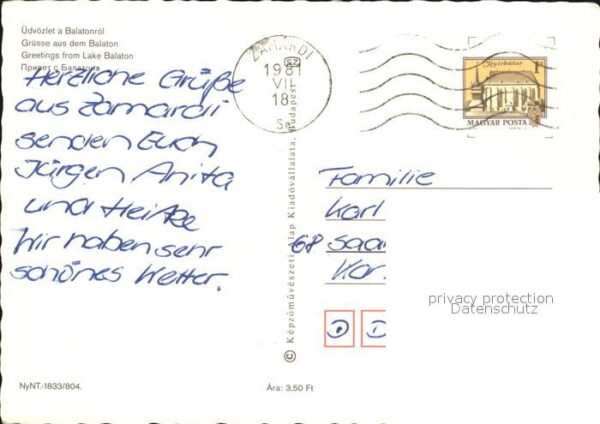 Üdvözlet a Balatonról
Grüsse aus dem Balaton
Greetings from Lake Balaton
Привет с Балатона
Herzliche Grüße
aus Zamardi
senden Euch
Jürgen Anita
und Heike
Wir haben sehr
schönes Wetter.
NyNT.-1833/804.
ZAMÁRDI
1981
VII.
18.
© Képzőművészeti Alap Kiadóvállalata, Budapest
Ára: 3,50 Ft
Nyírbátor 1Ft
MAGYAR POSTA
Familie
Karl
Saar
Kar.
D
privacy protection
Datenschutz